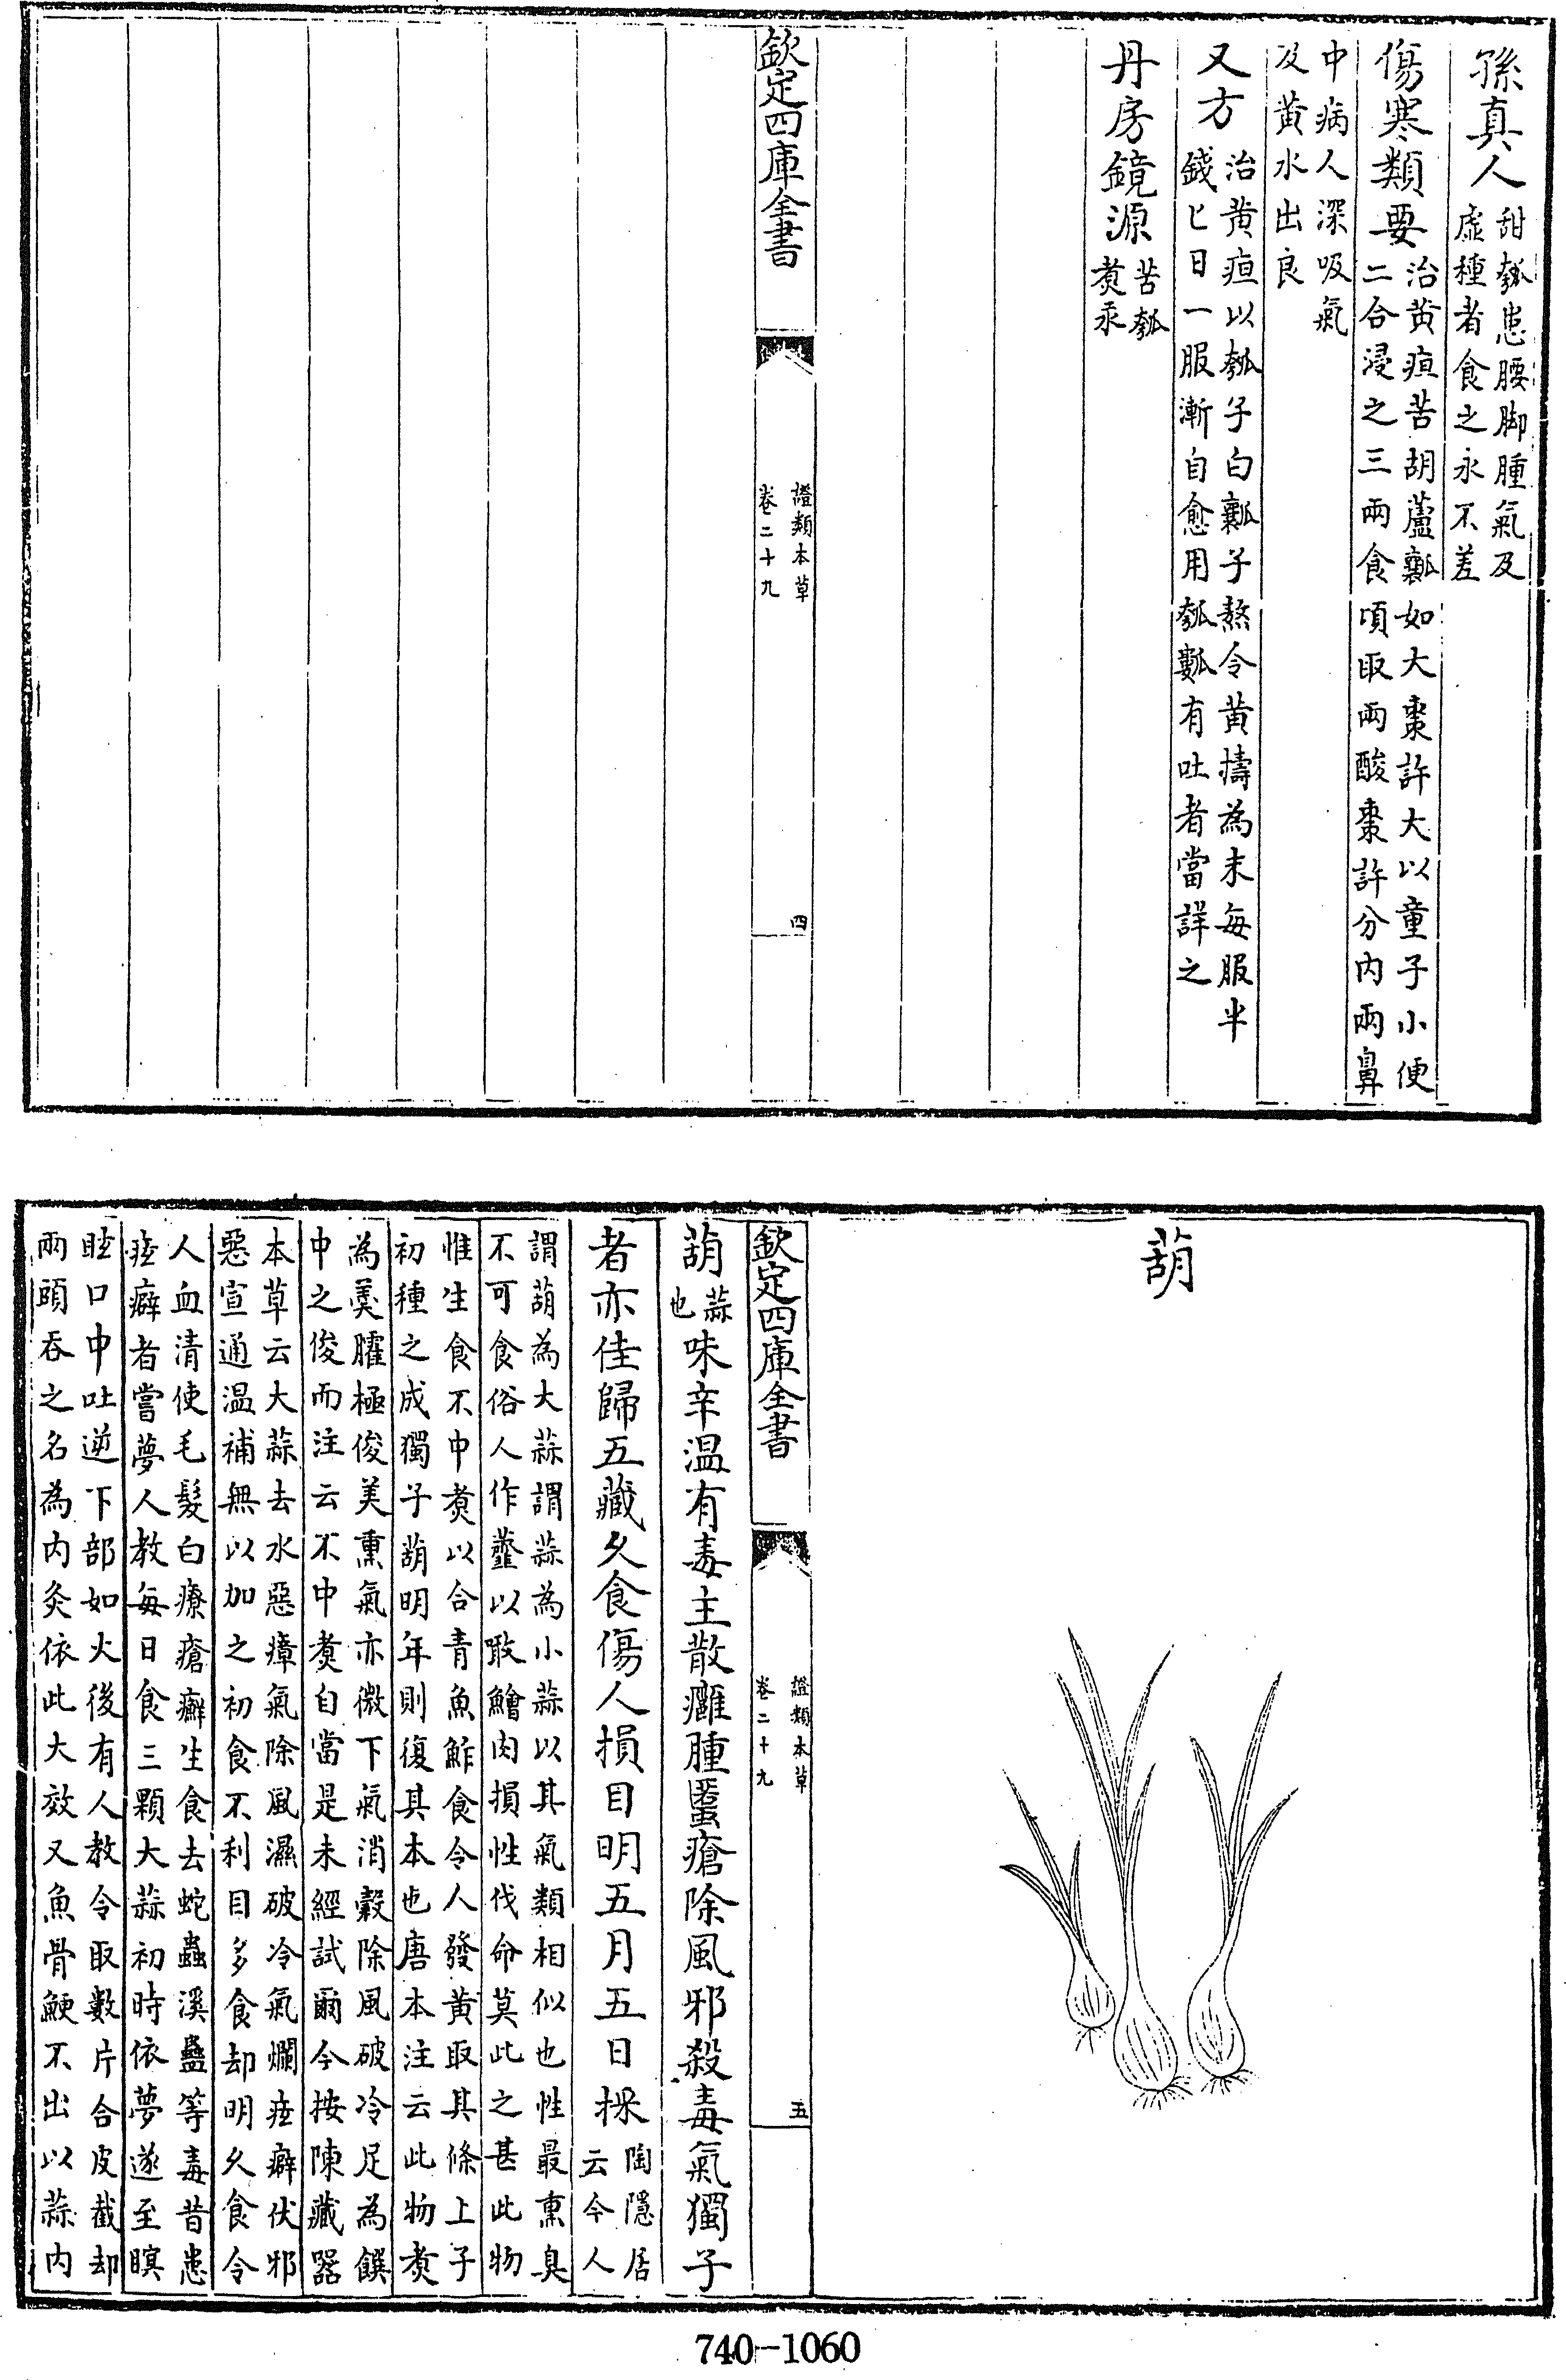 孫真人甜瓠患腰脚腫氣及
虚種者食之永不差
傷寒類要治黄疸苦胡蘆瓤如大棗許大以童子小便
二合浸之三兩食頃取兩酸棗許分内兩鼻
中病人深吸氣
及黄水出良
又方治黄疸以瓠子白瓤子熬令黄擣為末每服半
錢匕日一服漸自愈用瓠瓤有吐者當詳之
丹房鏡源苦瓠
煑汞
欽定四庫全書
證類本草
卷二十九
四
葫
欽定四庫全書
證類本草
卷二十九
五
葫蒜
也味辛温有毒主散癰腫䘌瘡除風邪殺毒氣獨子
者亦佳歸五藏久食傷人損目明五月五日採陶隱居
云今人
謂葫為大蒜謂蒜為小蒜以其氣類相似也性最熏臭
不可食俗人作虀以噉鱠肉損性伐命莫此之甚此物
惟生食不中煑以合青魚鮓食令人發黄取其條上子
初種之成獨子葫明年則復其本也唐本注云此物煑
為羮臛極俊美熏氣亦微下氣消穀除風破冷足為饌
中之俊而注云不中煑自當是未經試爾今按陳藏器
本草云大蒜去水惡瘴氣除風濕破冷氣爛痃癖伏邪
惡宣通温補無以加之初食不利目多食却明久食令
人血清使毛髮白療瘡癬生食去蛇蟲溪蠱等毒昔患
痃癖者嘗夢人教每日食三顆大蒜初時依夢遂至瞑
眩口中吐逆下部如火後有人教令取數片合皮截却
兩頭吞之名為内灸依此大效又魚骨鯁不出以蒜内
740-1060